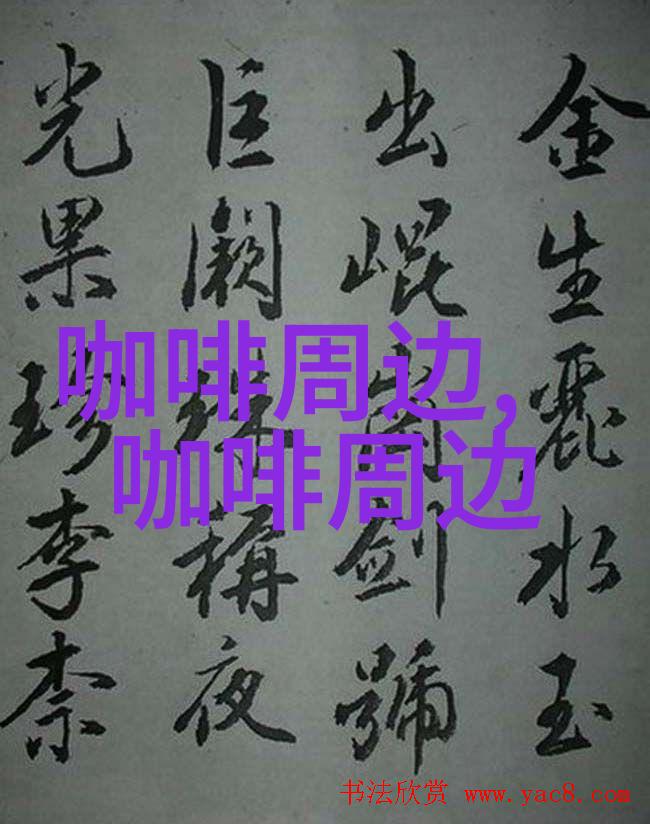 金生麗水玉
出崐崗劍號
巨闕珠稱夜
光果珍李柰
咖啡周边,
咖啡周边
书法欣赏 www.yac8.com